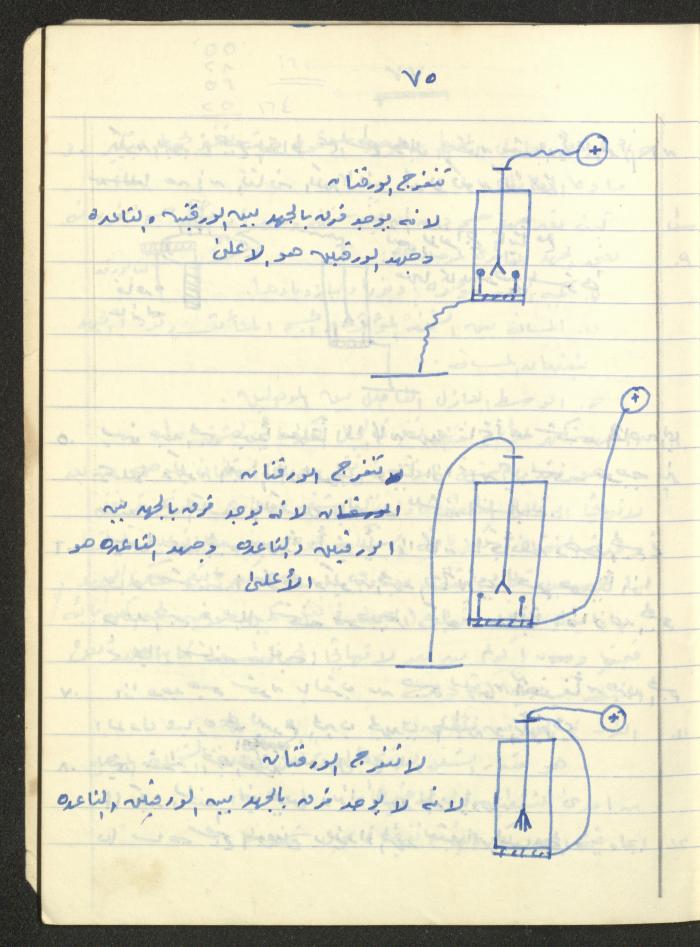 ٧٥
+
تنفرج الورقتان
لانه يوجد فرق بالجهد بين الورقتين والقاعده
وجهد الورقتين هو الاعلى
+
تنفرج الورقتان
الورقتان لانه يوجد فرق بالجهد بين
الورقتين والقاعده وجهد القاعده هو
الأعلى
+
لا تنفرج الورقتان
لانه لا يوجد فرق بالجهد بين الورقتين والقاعده